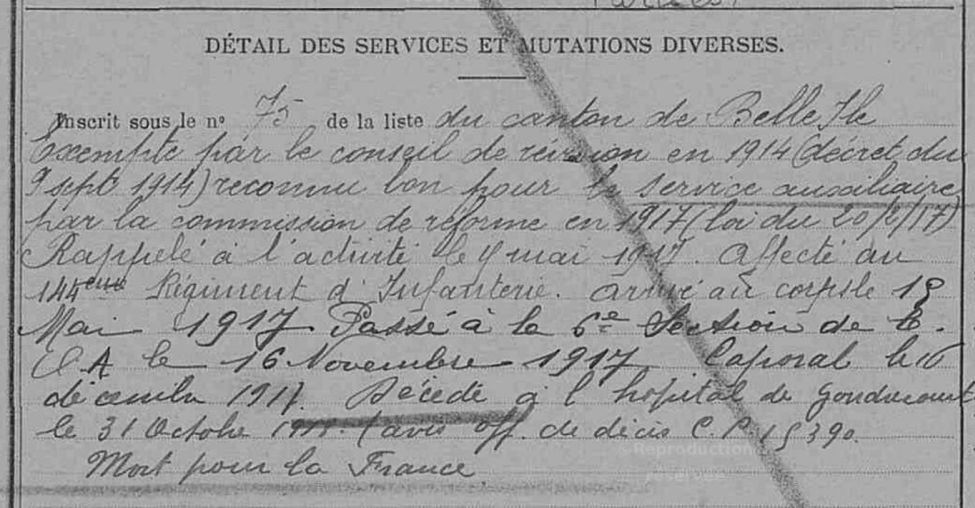 DÉTAIL DES SERVICES ET MUTATIONS DIVERSES.
Inscrit sous le nº 75 de la liste du canton de Belle Ile
Exempté par le conseil de révision en 1914 (décret du
9 sept 1914) reconnu bon pour le service auxiliaire
par la commission de réforme en 1917 (loi du 20/2/17)
Rappelé à l'activité le mai 1917. Affecté au
144eme Régiment d'Infanterie. arrivé au corps le
Mai 1917 Passé à la 6e Section de
le 16 Novembre 1917 Caporal le 16
décembre 1917. Décédé à l'hopital de Gondrecourt
le 31 Octobre (avis off. de décès C.P.
Mort pour la France.
Reproduction
réservée